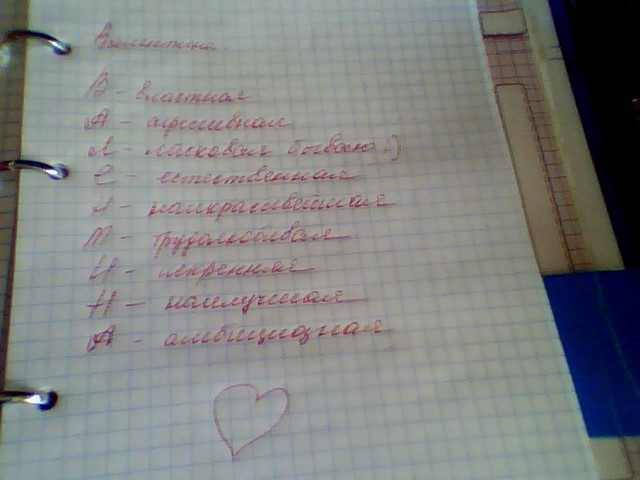 Валентина
В - властная
А - агрессивная
Л - ласковая бываю.)
Е - естественная
Н - наикрасивейшая
Т - трудолюбивая
И - искренняя
Н - наилучшая
А - амбициозная